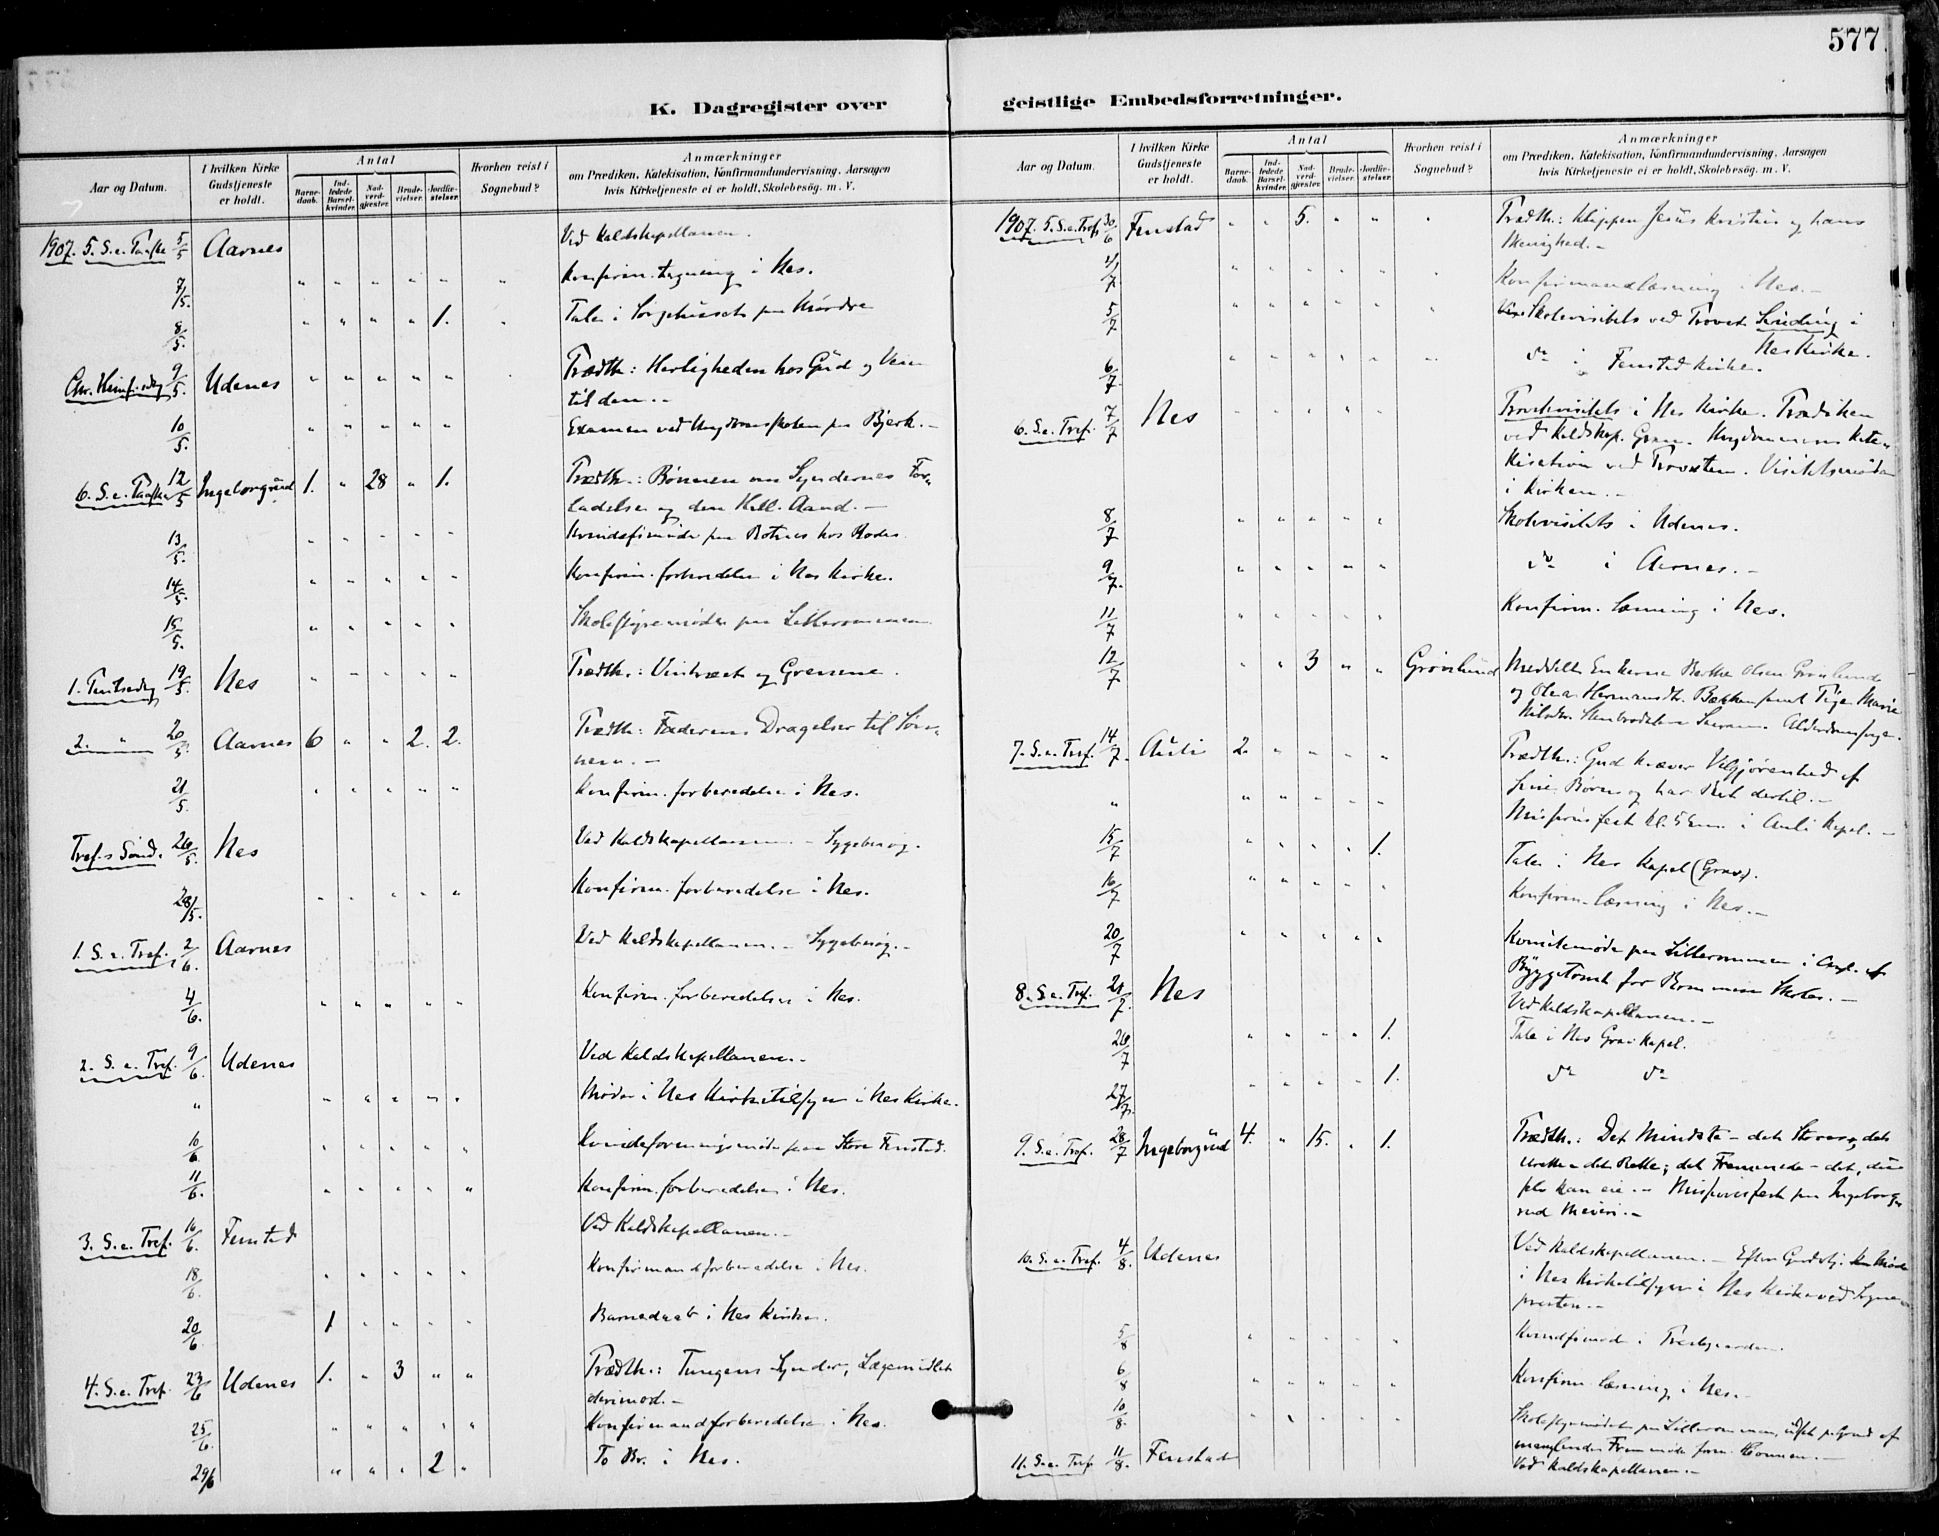 577
K. Dagregister over geistlige Embedsforretninger.
Aar og Datum. I hvilken Kirke Gudstjeneste er holdt. Antal Barnedaab. Indledede Barselkvinder. Nadverdgjester. Brudevielser. Jordfæstelser. Hvorhen reist i Sognebud? Anmærkninger om Prædiken, Katekisation, Konfirmandundervisning, Aarsagen hvis Kirketjeneste ei er holdt, Skolebesøg. m. V.
1907. 5. S. e. Paaske 5/5 Aarnes Ved Kaldskapellanen.
7/5. " " " " " " Konfirm. tagning i Nes.
8/5. " " " " 1. " Tale i Sørgehuset paa Mørdre
Chr. Himf.dag 9/5. Udenes " " " " " Prædth.: Herligheden hos Gud og Veien
til den. -
10/5. " " " " " Examen ved Ungdomsskolen paa Bjerk. -
6. S. e. Paaske 12/5 Ingeborgrud 1. " 28 " 1. Prædth.: Bønnen om Syndernes For-
ladelse og den Hell. Aand. -
13/5. " " " " " Kvindefmøde paa Rotnes hos
14/5. " " " " " Konfirm. forberedelse i Nes Kirke.
15/5. " " " " " Skolestyremøde paa Lillerommen
1. Pintsedag 19/5. Nes " " " " " Prædth.: Vintræet og Grenene.
2. " 20/5. Aarnes 6 " " 2. 2. Prædth: Faderens Dragelser til Søn-
nen. -
21/5. " " " " " Konfirm. forberedelse i Nes.
Tref.s Sønd. 26/5. Nes Ved Kaldskapellanen. - Sygebesøg.
28/5. " " " " " Konfirm. forberedelse i Nes.
1. S. e. Tref. 2/6. Aarnes Ved Kaldskapellanen. - Sygebesøg. -
4/6. " " " " " Konfirm. forberedelse i Nes.
2. S. e. Tref. 9/6. Udenes Ved Kaldskapellanen. -
" " " " " " Møde i Nes Kirketilsyn i Nes Kirke.
10/6 " " " " " Kvindeforeningsmøde paa Store Fenstad.
11/6. " " " " " Konfirm. forberedelse i Nes.
3. S. e. Tref. 16/6. Fenstad Ved Kaldskapellanen. -
18/6. " " " " " Konfirmandforberedelse i Nes.
20/6. 1 " " " " Barnedaab i Nes Kirke.
4. S. e. Tref. 23/6 Udenes 1. " 3 " " Prædth.: Tungens Synder; Lægemidlet
derimod. -
25/6. " " " " " Konfirmandforberedelse i Nes.
29/6 " " " 2 " To Br. i Nes.
geistlige Embedsforretninger.
Aar og Datum. I hvilken Kirke Gudstjeneste er holdt. Antal Barnedaab. Indledede Barselkvinder. Nadverdgjester. Brudevielser. Jordfæstelser. Hvorhen reist i Sognebud? Anmærkninger om Prædiken, Katekisation, Konfirmandundervisning, Aarsagen hvis Kirketjeneste ei er holdt, Skolebesøg. m. V.
1907. 5. S. e. Tref. 30/6 Fenstad " " 5. " " " Prædth.: Klippen Jesus Kristus og hans
Menighed. -
4/7 " " " " " " Konfirmandlæsning i Nes. -
5/7 " " " " " " Skolevisitats ved Provst Sinding i
Nes Kirke.
6/7. " " " " " " do i Fenstad Kirke.
6. S. e. Tref. 7/7 Nes " " " " " Provstevisitats i Nes Kirke. Prædiken
ved Kaldskap. Ungdommens Kate-
kisation ved Provsten. Visitatsmøde
i Kirken. -
8/7 " " " " " Skolevisitats i Udenes.
9/7. " " " " " do i Aarnes. -
11/7 " " " " " Konfirm. læsning i Nes.
12/7 " " 3 " " Grøvslund Meddelt Enkerne Berthe Olsen Grøvslund
og Olea Hermansdtr. Bakken samt Pige Marie
Nilsdtr. Alderdomssvage.
7. S. e. Tref. 14/7. Auli 2. " " " " Prædth.: Gud kræver Velgjørenhed af
sine Børn og har Ret dertil. -
" " " " " " Missionsfest Kl. 5 Em. i Auli Kapel. -
15/7 " " " " 1. Tale i Nes Kapel (Grav).
16/7 " " " " " Konfirm. læsning i Nes. -
20/7 " " " " " Komitemøde paa Lillerommen i Anl. af
Byggetomt for Rommen Skole. -
8. S. e. Tref. 21/7. Nes Ved Kaldskapellanen. -
26/7 " " " " 1. Tale i Nes Gravkapel.
27/7. " " " " 1. do do
9. S. e. Tref. 28/7 Ingeborgrud 4. " 15. " 1. Prædth.: Det Mindste - det Største, det
Urette - det Rette; det Fremmede - det,
selv kan eie. - Missionsfest paa Ingeborg-
rud Meieri. -
10. S. e. Tref. 4/8. Udenes Ved Kaldskapellanen. - Efter Gudstj. Møde
i Nes Kirketilsyn i Nes Kirke ved Sogne-
presten. -
5/8 " " " " " Kvindefmøde i Prestegaarden.
6/8 " " " " " Konfirm. læsning i Nes. -
10/8. " " " " " Skolestyremøde paa Lillerommen, udsat paagrund af
manglende Fremmøde -
11. S. e. Tref 11/8. Fenstad Ved Kaldskapellanen. -